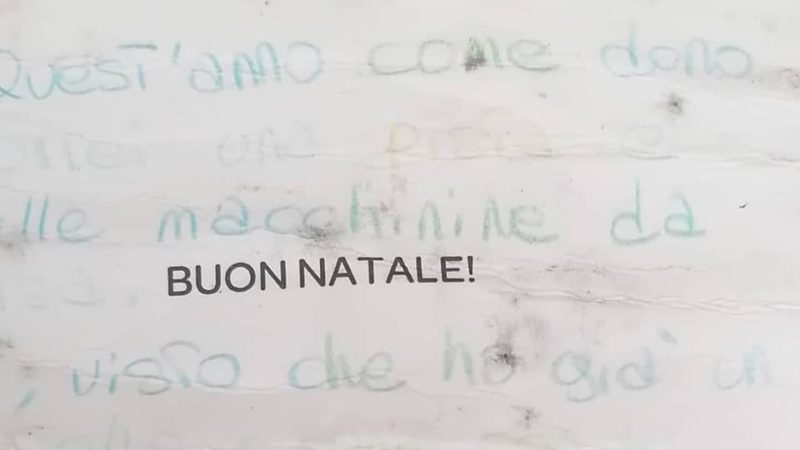 QUEST'ANNO come dono
una pista e
macchinine da
BUON NATALE!
, visto che ho già un